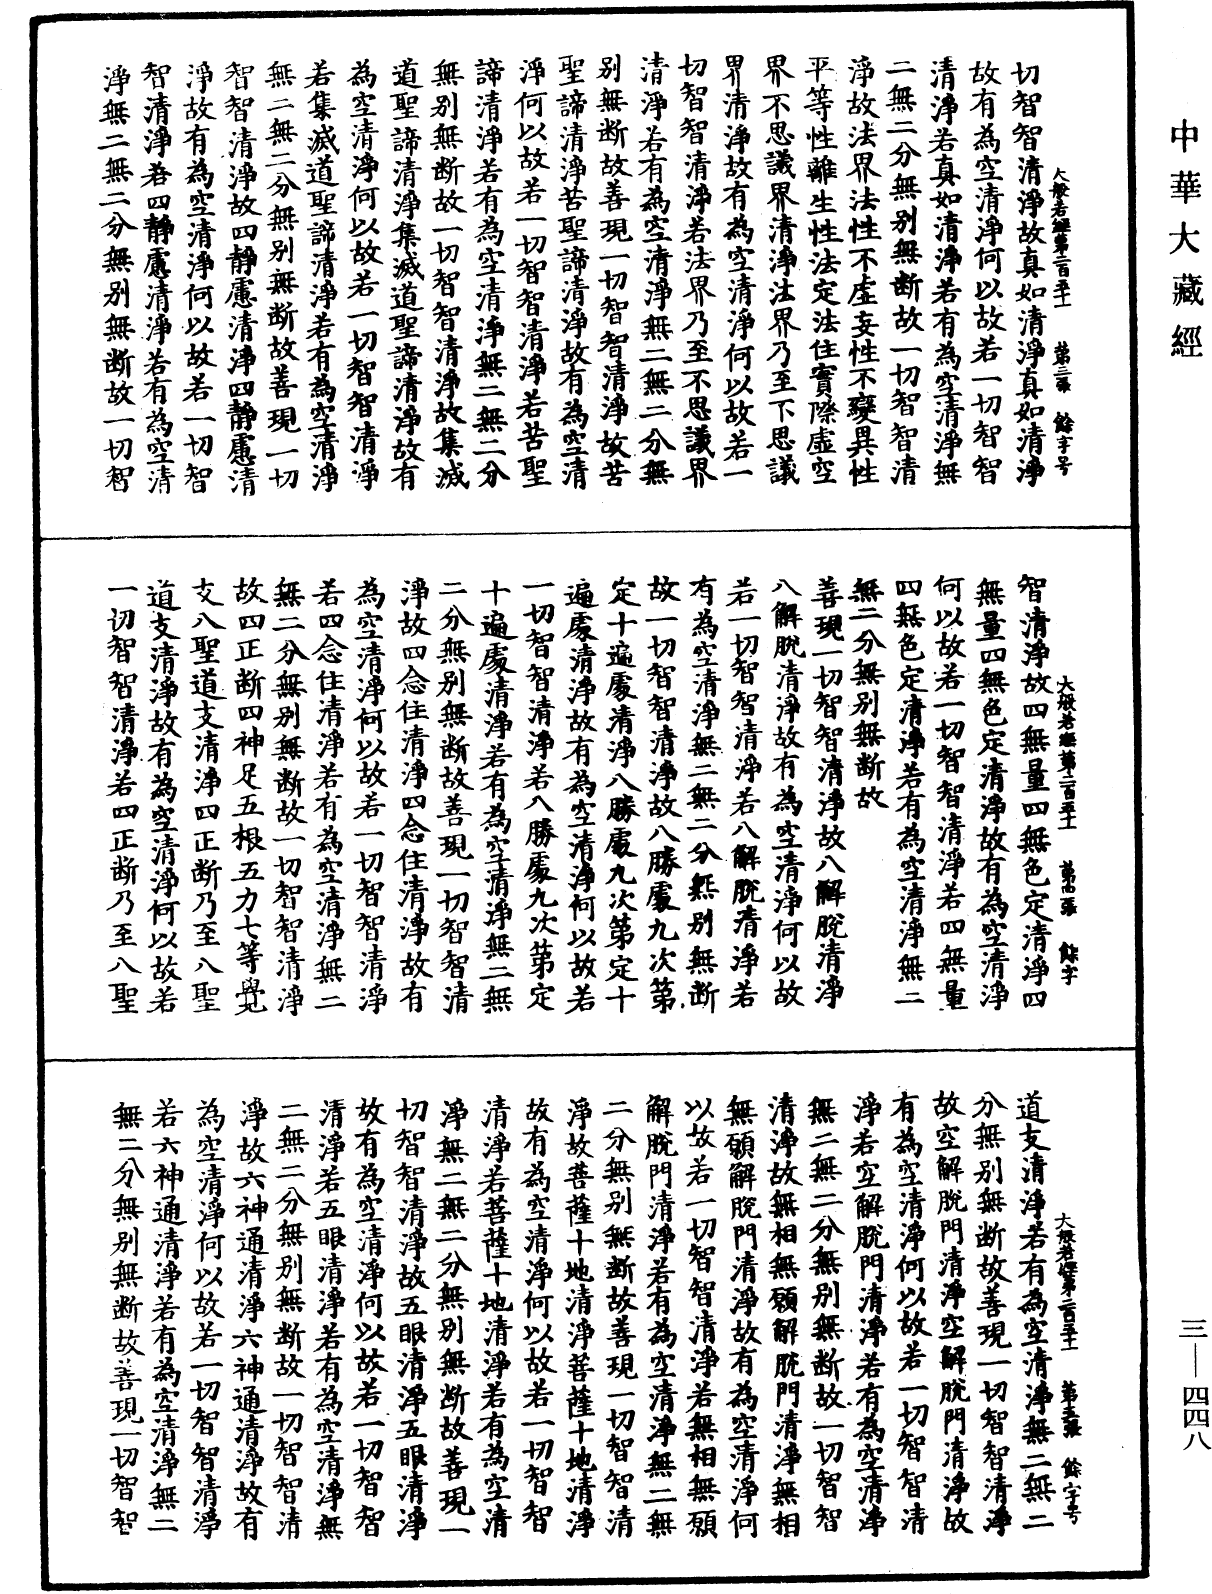 中華大藏經
大般若經第二百五十一 第三張 餘字号
切智智清淨故真如清淨真如清淨
故有為空清淨何以故若一切智智
清淨若真如清淨若有為空清淨無
二無二分無別無斷故一切智智清
淨故法界法性不虛妄性不變異性
平等性離生性法定法住實際虛空
界不思議界清淨法界乃至不思議
界清淨故有為空清淨何以故若一
切智智清淨若法界乃至不思議界
清淨若有為空清淨無二無二分無
別無斷故善現一切智智清淨故苦
聖諦清淨苦聖諦清淨故有為空清
淨何以故若一切智智清淨若苦聖
諦清淨若有為空清淨無二無二分
無別無斷故一切智智清淨故集滅
道聖諦清淨集滅道聖諦清淨故有
為空清淨何以故若一切智智清淨
若集滅道聖諦清淨若有為空清淨
無二無二分無別無斷故善現一切
智智清淨故四靜慮清淨四靜慮清
淨故有為空清淨何以故若一切智
智清淨若四靜慮清淨若有為空清
淨無二無二分無別無斷故一切智
大般若經第二百五十一 第四張 餘字
智清淨故四無量四無色定清淨四
無量四無色定清淨故有為空清淨
何以故若一切智智清淨若四無量
四無色定清淨若有為空清淨無二
無二分無別無斷故
善現一切智智清淨故八解脫清淨
八解脫清淨故有為空清淨何以故
若一切智智清淨若八解脫清淨若
有為空清淨無二無二分無別無斷
故一切智智清淨故八勝處九次第
定十遍處清淨八勝處九次第定十
遍處清淨故有為空清淨何以故若
一切智智清淨若八勝處九次第定
十遍處清淨若有為空清淨無二無
二分無別無斷故善現一切智智清
淨故四念住清淨四念住清淨故有
為空清淨何以故若一切智智清淨
若四念住清淨若有為空清淨無二
無二分無別無斷故一切智智清淨
故四正斷四神足五根五力七等覺
支八聖道支清淨四正斷乃至八聖
道支清淨故有為空清淨何以故若
一切智智清淨若四正斷乃至八聖
大般若經第二百五十一 第五張 餘字号
道支清淨若有為空清淨無二無二
分無別無斷故善現一切智智清淨
故空解脫門清淨空解脫門清淨故
有為空清淨何以故若一切智智清
淨若空解脫門清淨若有為空清淨
無二無二分無別無斷故一切智智
清淨故無相無願解脫門清淨無相
無願解脫門清淨故有為空清淨何
以故若一切智智清淨若無相無願
解脫門清淨若有為空清淨無二無
二分無別無斷故善現一切智智清
淨故菩薩十地清淨菩薩十地清淨
故有為空清淨何以故若一切智智
清淨若菩薩十地清淨若有為空清
淨無二無二分無別無斷故善現一
切智智清淨故五眼清淨五眼清淨
故有為空清淨何以故若一切智智
清淨若五眼清淨若有為空清淨無
二無二分無別無斷故一切智智清
淨故六神通清淨六神通清淨故有
為空清淨何以故若一切智智清淨
若六神通清淨若有為空清淨無二
無二分無別無斷故善現一切智智
三—四四八